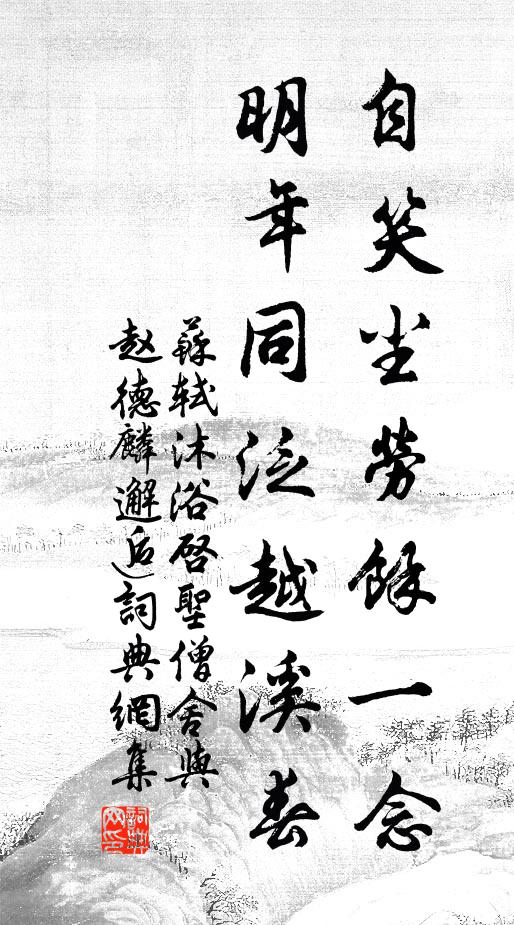 自笑塵勞餘一念
明年同泛越溪春
蘇軾沐浴啓聖僧舍與
趙德麟邂逅詞典網集